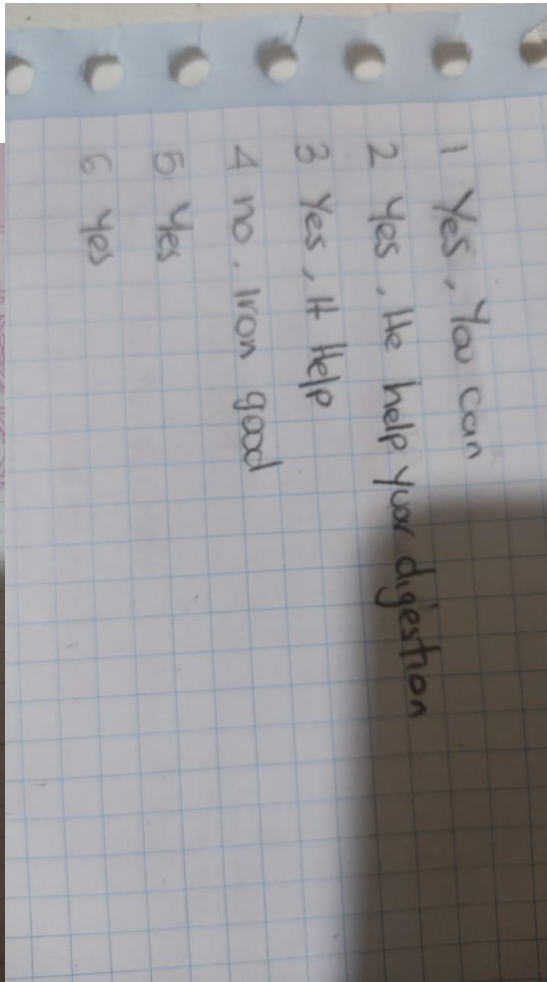 1 Yes, You can
2 Yes, He help your digestion
3 Yes, It Help
4 no, Iron good
5 Yes
6 Yes